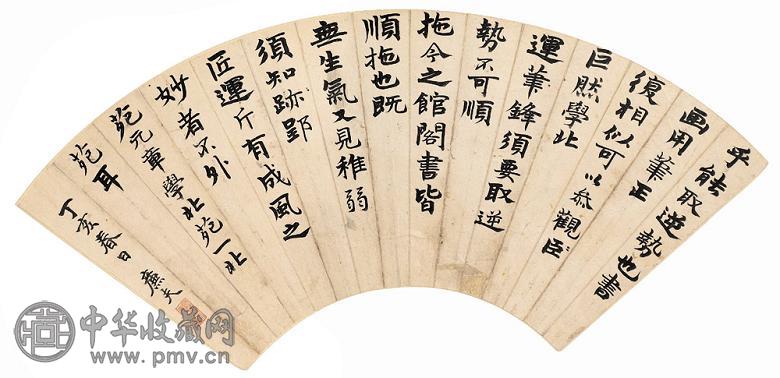 乎能取逆勢也書
画用筆正
復相似可以參觀臣
巨然學北
運筆鋒須要取逆
勢不可順
拖今之館閣書皆
順拖也既
無生氣又見稚弱
須知跡郢
匠運斤有成風之
妙者不外
苑元章學北苑一北
苑耳
丁亥春日 廉夫
中华收藏网
www.pmv.cn